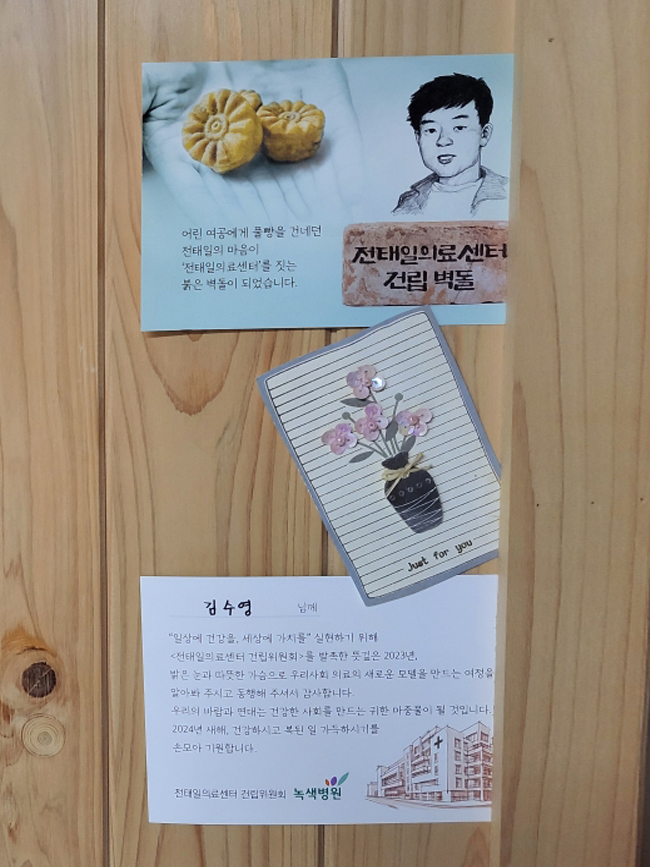 어린 여공에게 풀빵을 건네던
전태일의 마음이
'전태일의료센터'를 짓는
붉은 벽돌이 되었습니다.
전태일의료센터
건립 벽돌
Just for you
김수영 님께
"일상에 건강을, 세상에 가치를" 실현하기 위해
<전태일의료센터 건립위원회>를 발족한 뜻깊은 2023년,
밝은 눈과 따뜻한 가슴으로 우리사회 의료의 새로운 모델을 만드는 여정을
알아봐 주시고 동행해 주셔서 감사합니다.
우리의 바람과 연대는 건강한 사회를 만드는 귀한 마중물이 될 것입니다.
2024년 새해, 건강하시고 복된 일 가득하시기를
손모아 기원합니다.
전태일의료센터 건립위원회 녹색병원